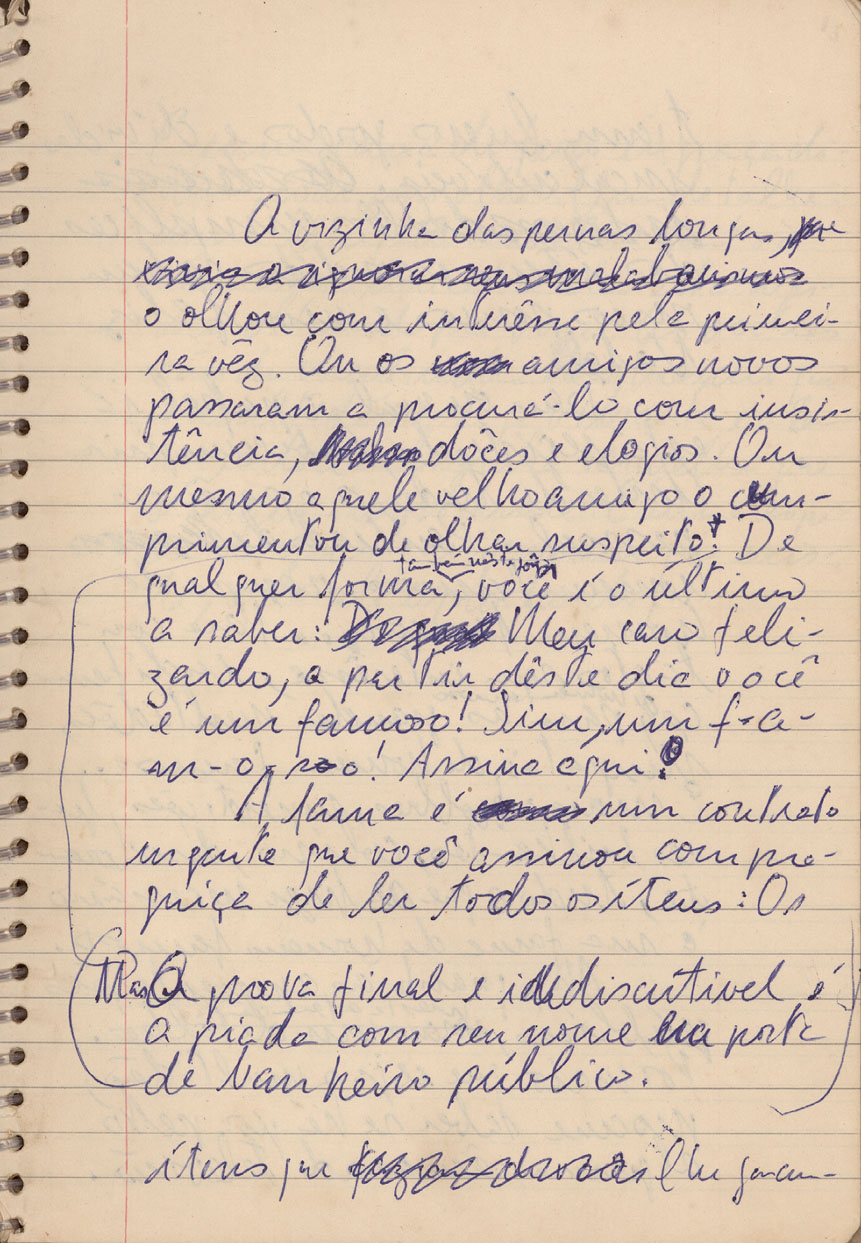 A vizinha das pernas longas,
o olhou com interêsse pela primei-
ra vêz. Ou os amigos novos
passaram a procurá-lo com insis-
tência, dôces e elogios. Ou
mesmo aquele velho amigo o cum-
primentou de olhar suspeito. De
também nesta
qualquer forma, você é o último
a saber: Meu caro feli-
zardo, a partir dêste dia você
é um famoso! Sim, um f-a-
m-o-s-o! Assine aqui!
A fama é um contrato
urgente que você assinou com pre-
guiça de ler todos os ítens: Os
Mas a prova final e indiscutivel é
a piada com seu nome na porta
de banheiro público.
ítens que lhe garan-